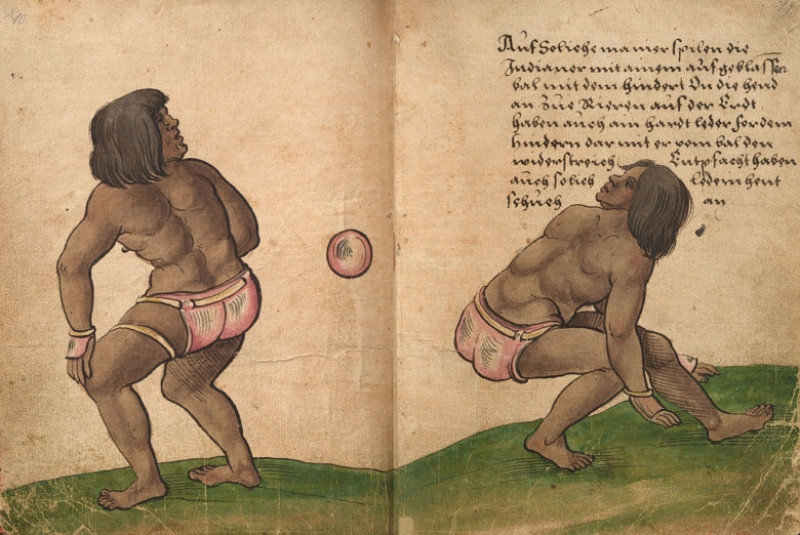 Auf Soliche manier spilen die
Indianer mit ainem auf geblassen
bal mit dem hindert On die hend
an Zue Rieren auf der Erdt
haben auch ain hardt leder for dem
hindern dar mit er vom bal den
widerstreich Entpfacht haben
auch solich ledern hent
schuech an